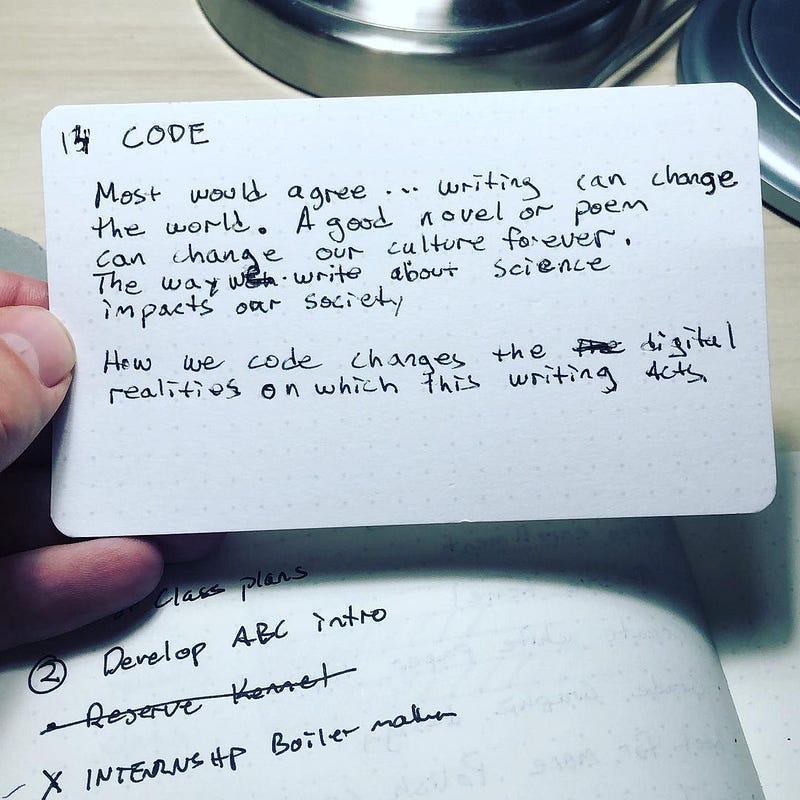 CODE
Most would agree ... writing can change
the world. A good novel or poem
can change our culture forever.
The way write about science
impacts our society
How we code changes the digital
realities on which this writing acts.
Class plans
② Develop ABC intro
Reserve Kennel
X INTERNSHP Boiler maker